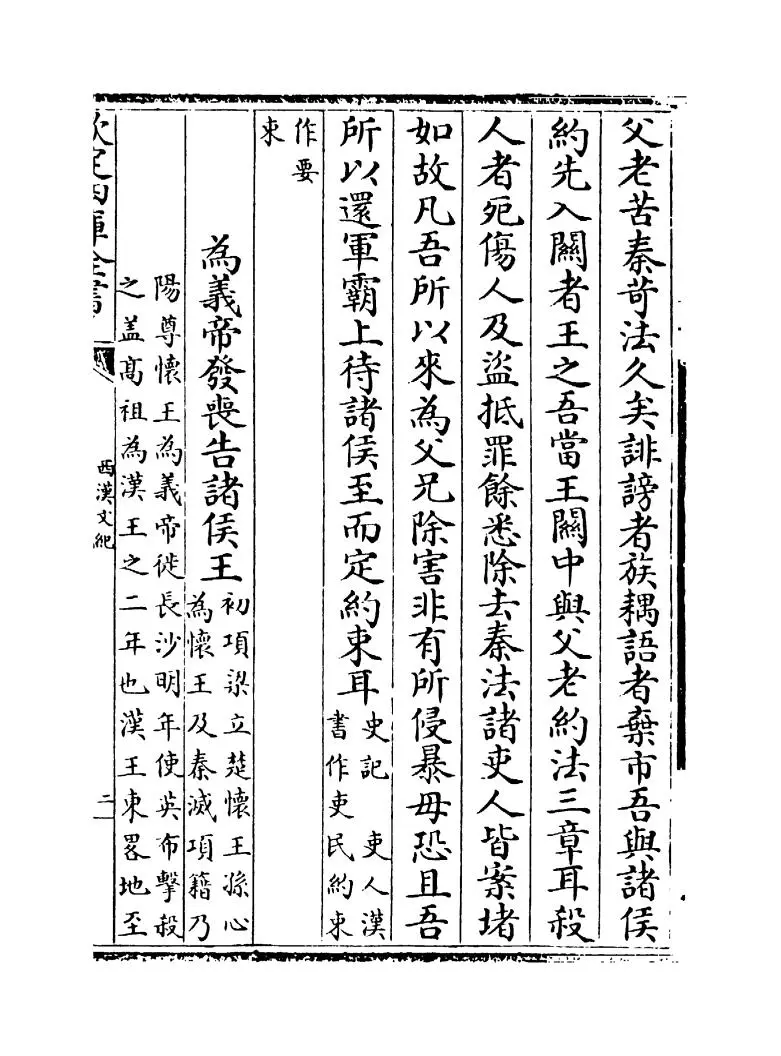 父老苦秦苛法久矣誹謗者族耦語者棄市吾與諸侯
約先入關者王之吾當王關中與父老約法三章耳殺
人者死傷人及盜抵罪餘悉除去秦法諸吏人皆案堵
如故凡吾所以來為父兄除害非有所侵暴毋恐且吾
所以還軍霸上待諸侯至而定約束耳
史記 吏人漢
書作吏民約束
作要
束
為義帝發喪告諸侯王
初項梁立楚懷王孫心
為懷王及秦滅項籍乃
陽尊懷王為義帝徙長沙明年使英布擊殺
之盖髙祖為漢王之二年也漢王東畧地至
欽定四庫全書
西漢文紀
二